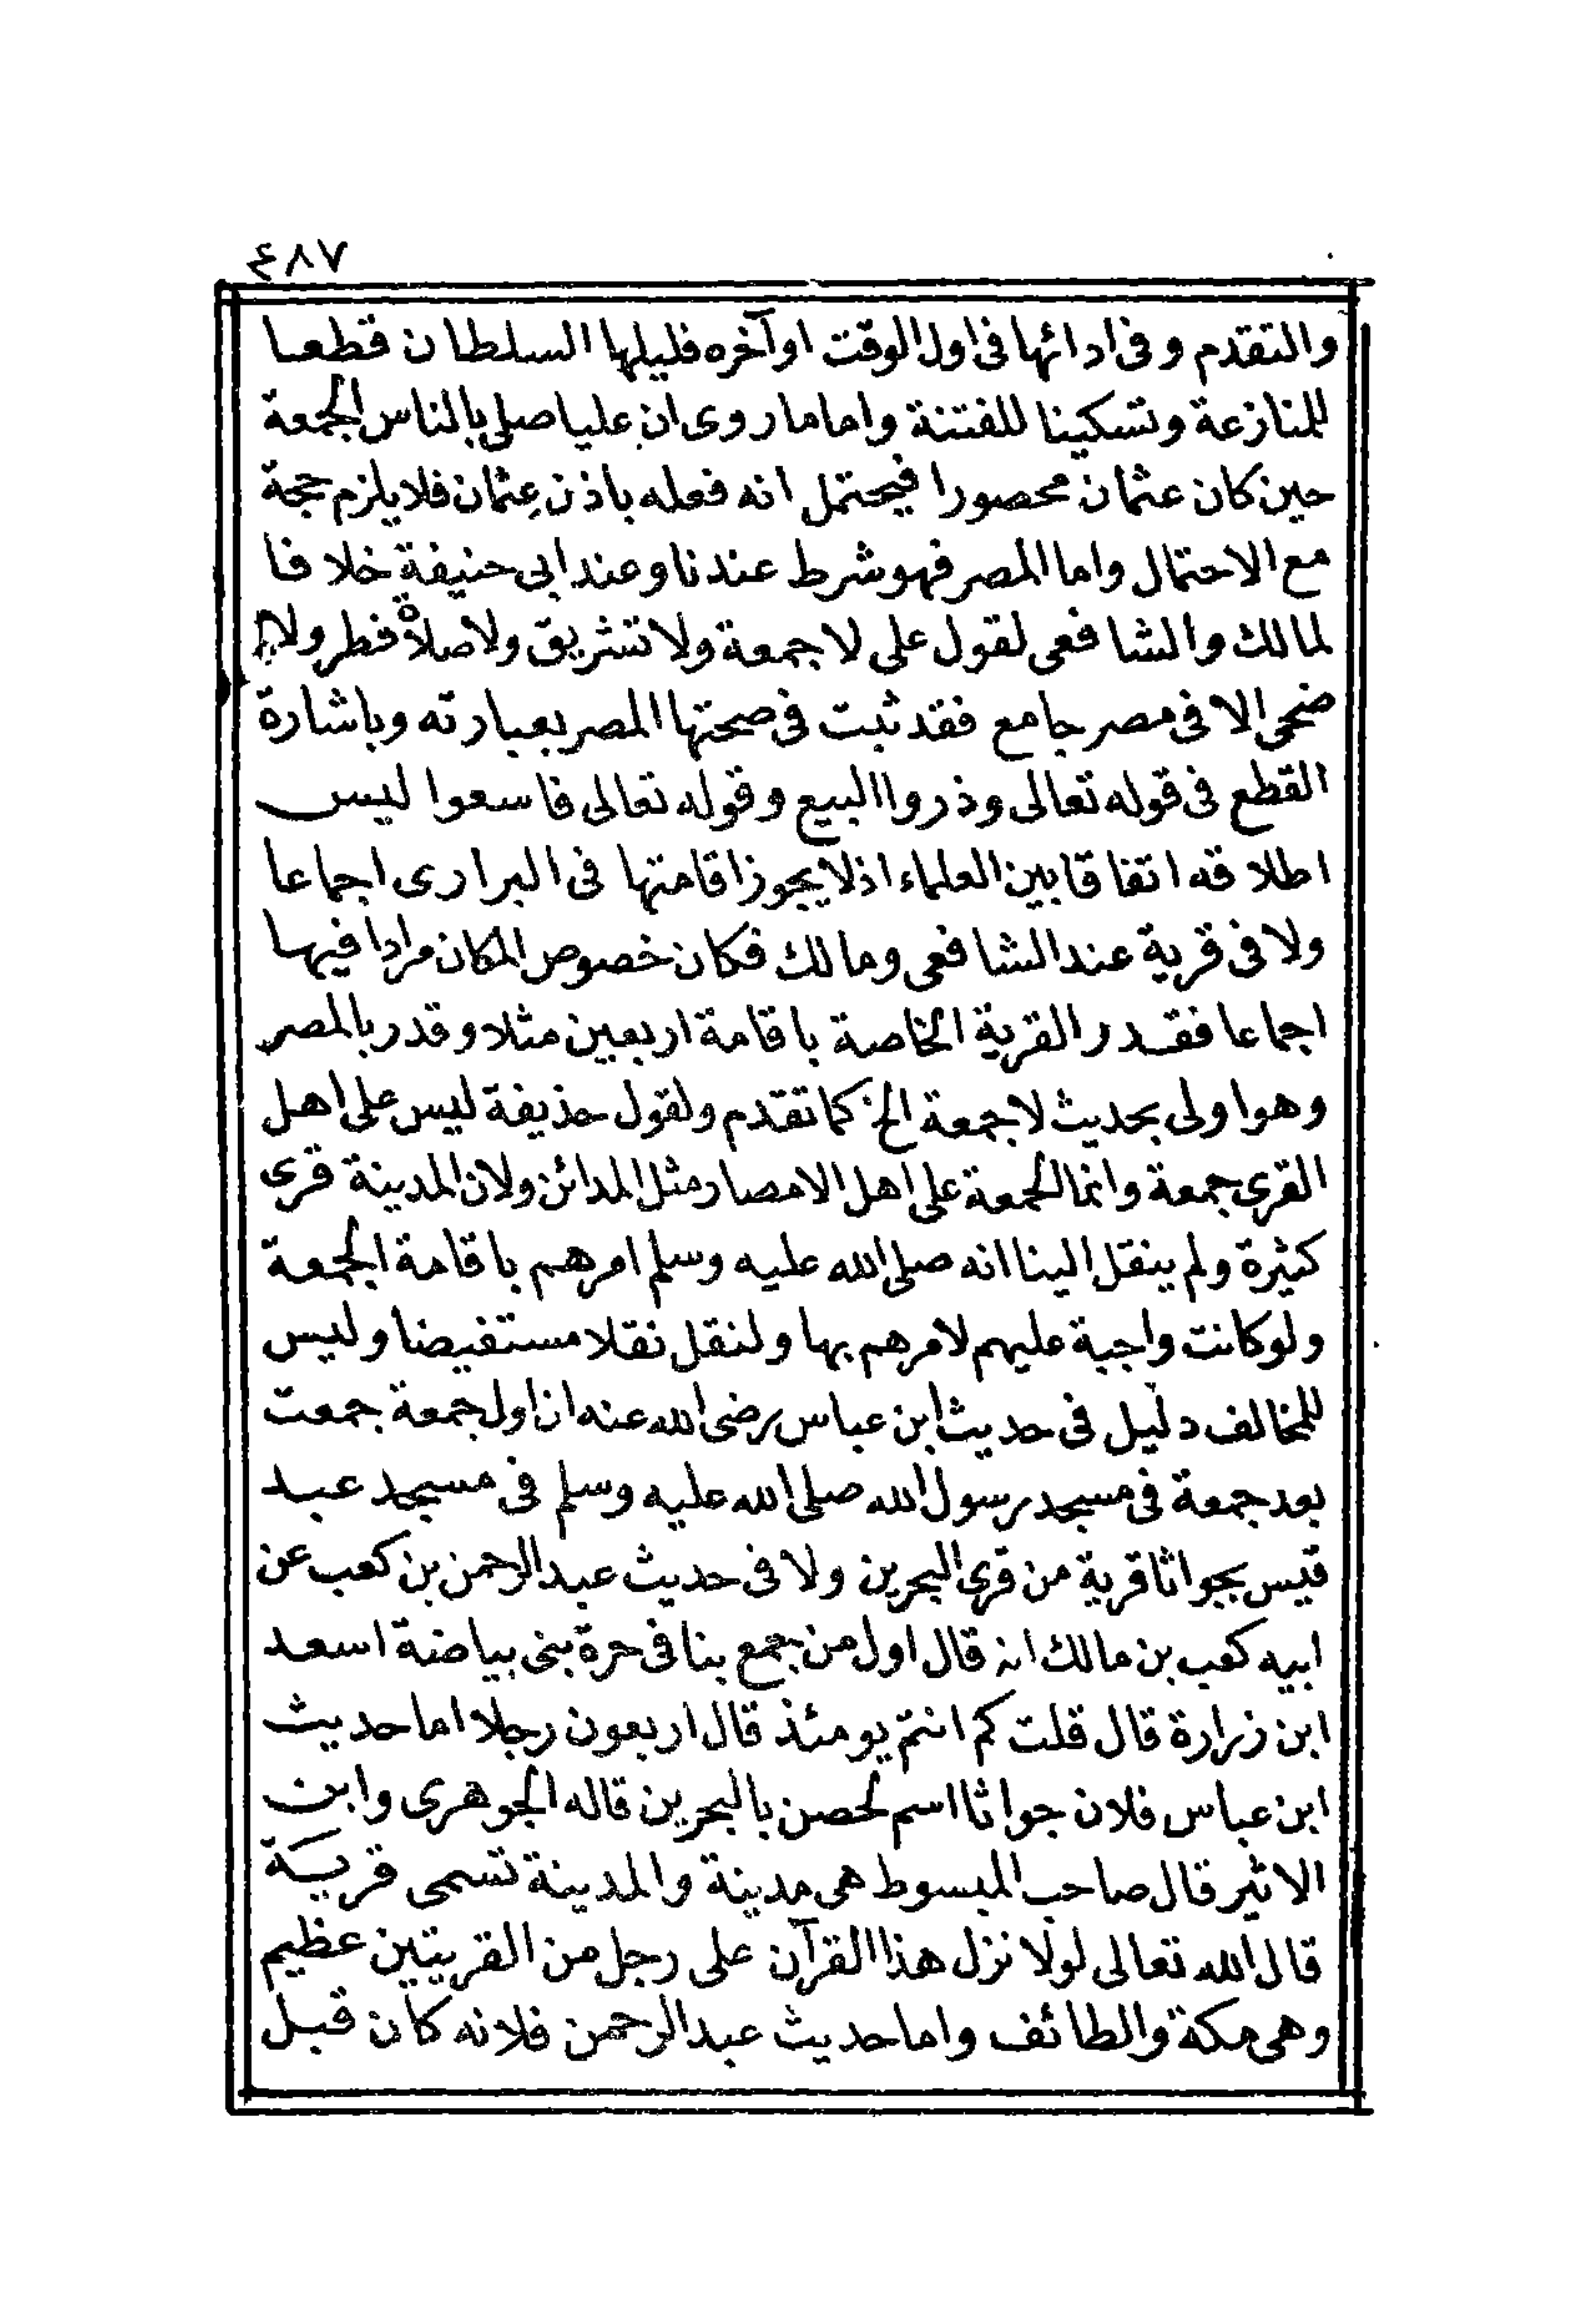 ٤٨٧
والتقدم وفى ادائها فى اول الوقت او آخره فليلها السلطان قطعا
للمنازعة وتسكينا للفتنة واما ما روى ان عليا صلى بالناس الجمعة
حين كان عثمان محصورا فيحتمل انه فعله باذن عثمان فلا يلزم حجة
مع الاحتمال واما المصر فهو شرط عندنا وعند ابى حنيفة خلافا
لمالك والشافعى لقول على لا جمعة ولا تشريق ولا صلاة فطر ولا
ضحى الا فى مصر جامع فقد ثبت فى صحتها المصر بعبارته وباشارة
القطع فى قوله تعالى وذروا البيع وقوله تعالى فاسعوا ليس
اطلاقه اتفاقا بين العلماء اذ لا يجوز اقامتها فى البرارى اجماعا
ولا فى قرية عند الشافعى ومالك فكان خصوص المكان مرادا فيها
اجماعا فقدر القرية الخاصة باقامة اربعين مثلا وقدر بالمصر
وهو اولى بحديث لا جمعة الخ كما تقدم ولقول حذيفة ليس على اهل
القرى جمعة وانما الجمعة على اهل الامصار مثل المدائن ولان المدينة قرى
كثيرة ولم ينقل الينا انه صلى الله عليه وسلم امرهم باقامة الجمعة
ولو كانت واجبة عليهم لامرهم بها ولنقل نقلا مستفيضا وليس
للمخالف دليل فى حديث ابن عباس رضى الله عنه ان اول جمعة جمعت
بعد جمعة فى مسجد رسول الله صلى الله عليه وسلم فى مسجد عبد
قيس بجواثا قرية من قرى البحرين ولا فى حديث عبد الرحمن بن كعب عن
ابيه كعب بن مالك انه قال اول من جمع بنا فى حرة بنى بياضة اسعد
ابن زرارة قال قلت كم انتم يومئذ قال اربعون رجلا اما حديث
ابن عباس فلان جواثا اسم لحصن بالبحرين قاله الجوهرى وابن
الاثير قال صاحب المبسوط هى مدينة والمدينة تسمى قرية
قال الله تعالى لولا نزل هذا القرآن على رجل من القريتين عظيم
وهى مكة والطائف واما حديث عبد الرحمن فلانه كان قبل